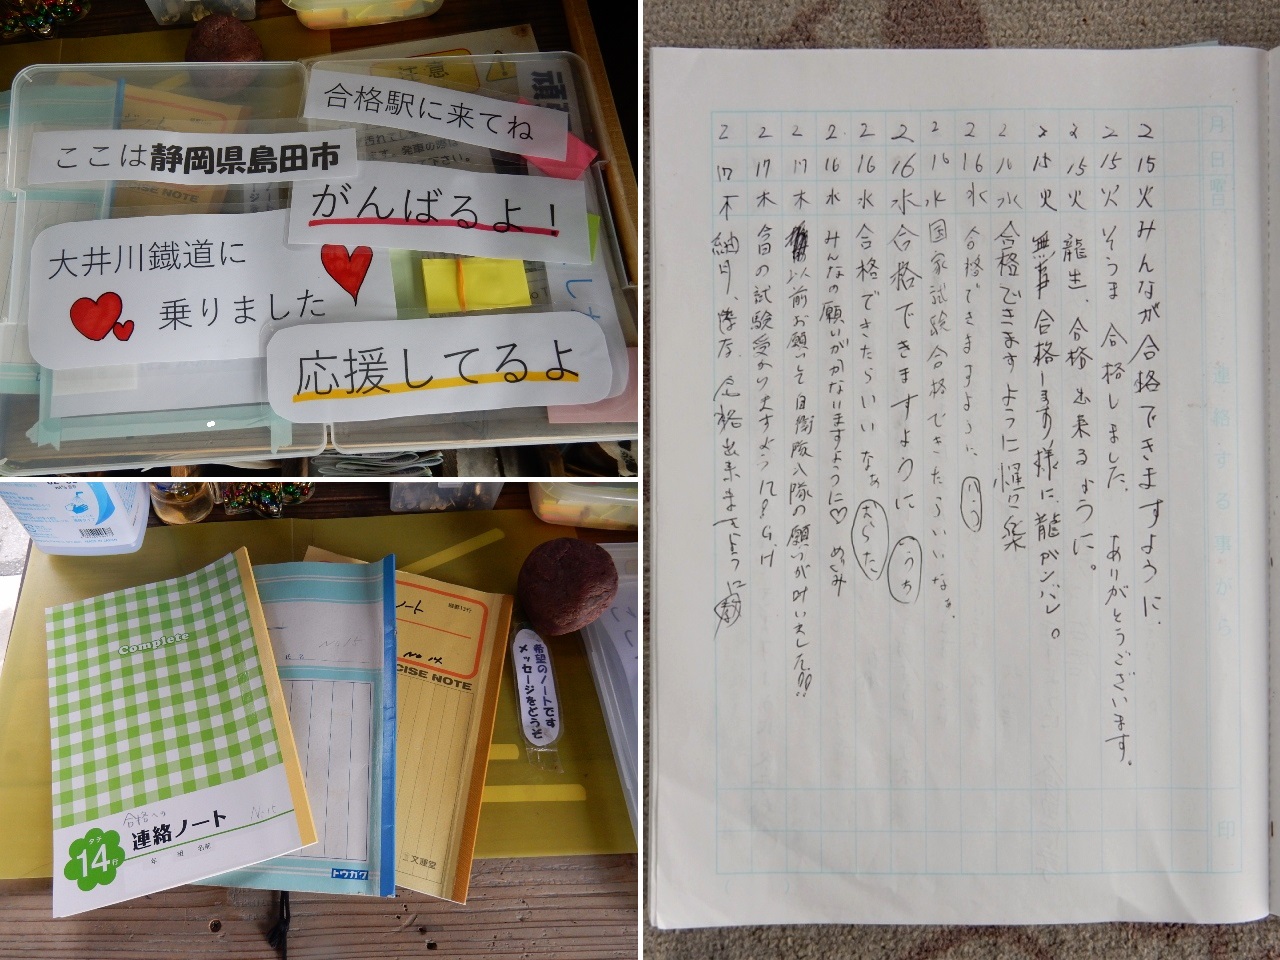 合格駅に来てね
ここは静岡県島田市
がんばるよ！
大井川鐵道に
乗りました
応援してるよ
注意
発車の際
ISE NOTE
Complete
合格への
連絡ノート
No.15
タテ
14行
年 組 名前
No.15
トウカク
ノート
縦罫13行
No.14
CISE NOTE
文運堂
希望のノートです
メッセージをどうぞ
月 日 曜 連絡する事がら 印
2 15 火 みんなが合格できますように。
2 15 火 そうま 合格しました。 ありがとうございます。
2 15 火 龍生、合格出来るように。
2 15 火 無事合格します様に、龍ガンバレ。
2 16 水 合格できますように
2 16 水 合格できますように、
2 16 水 国家試験合格できたらいいなぁ。
2 16 水 合格できますように うち
2 16 水 合格できたらいいなぁ
2 16 水 みんなの願いがかないますように♡
2 17 木 以前お願いして自衛隊入隊の願いが叶いました!!
2 17 木 今日の試験受かりますように
2 17 木 合格出来ますように